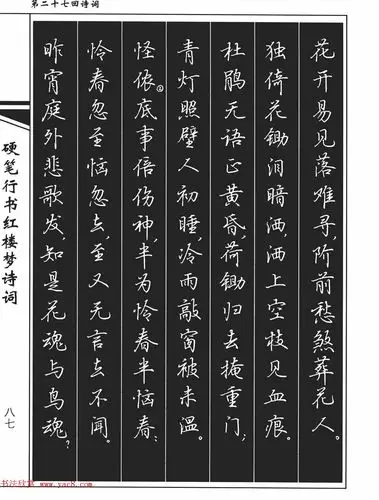 第二十七回诗词
花开易见落难寻，阶前愁煞葬花人。
独倚花锄泪暗洒，洒上空枝见血痕。
杜鹃无语正黄昏，荷锄归去掩重门；
青灯照壁人初睡，冷雨敲窗被未温。
怪侬②底事倍伤神，半为怜春半恼春：
怜春忽至恼忽去，至又无言去不闻。
昨宵庭外悲歌发，知是花魂与鸟魂？
硬笔行书红楼梦诗词
八七
书法欣赏
www.yac8.com